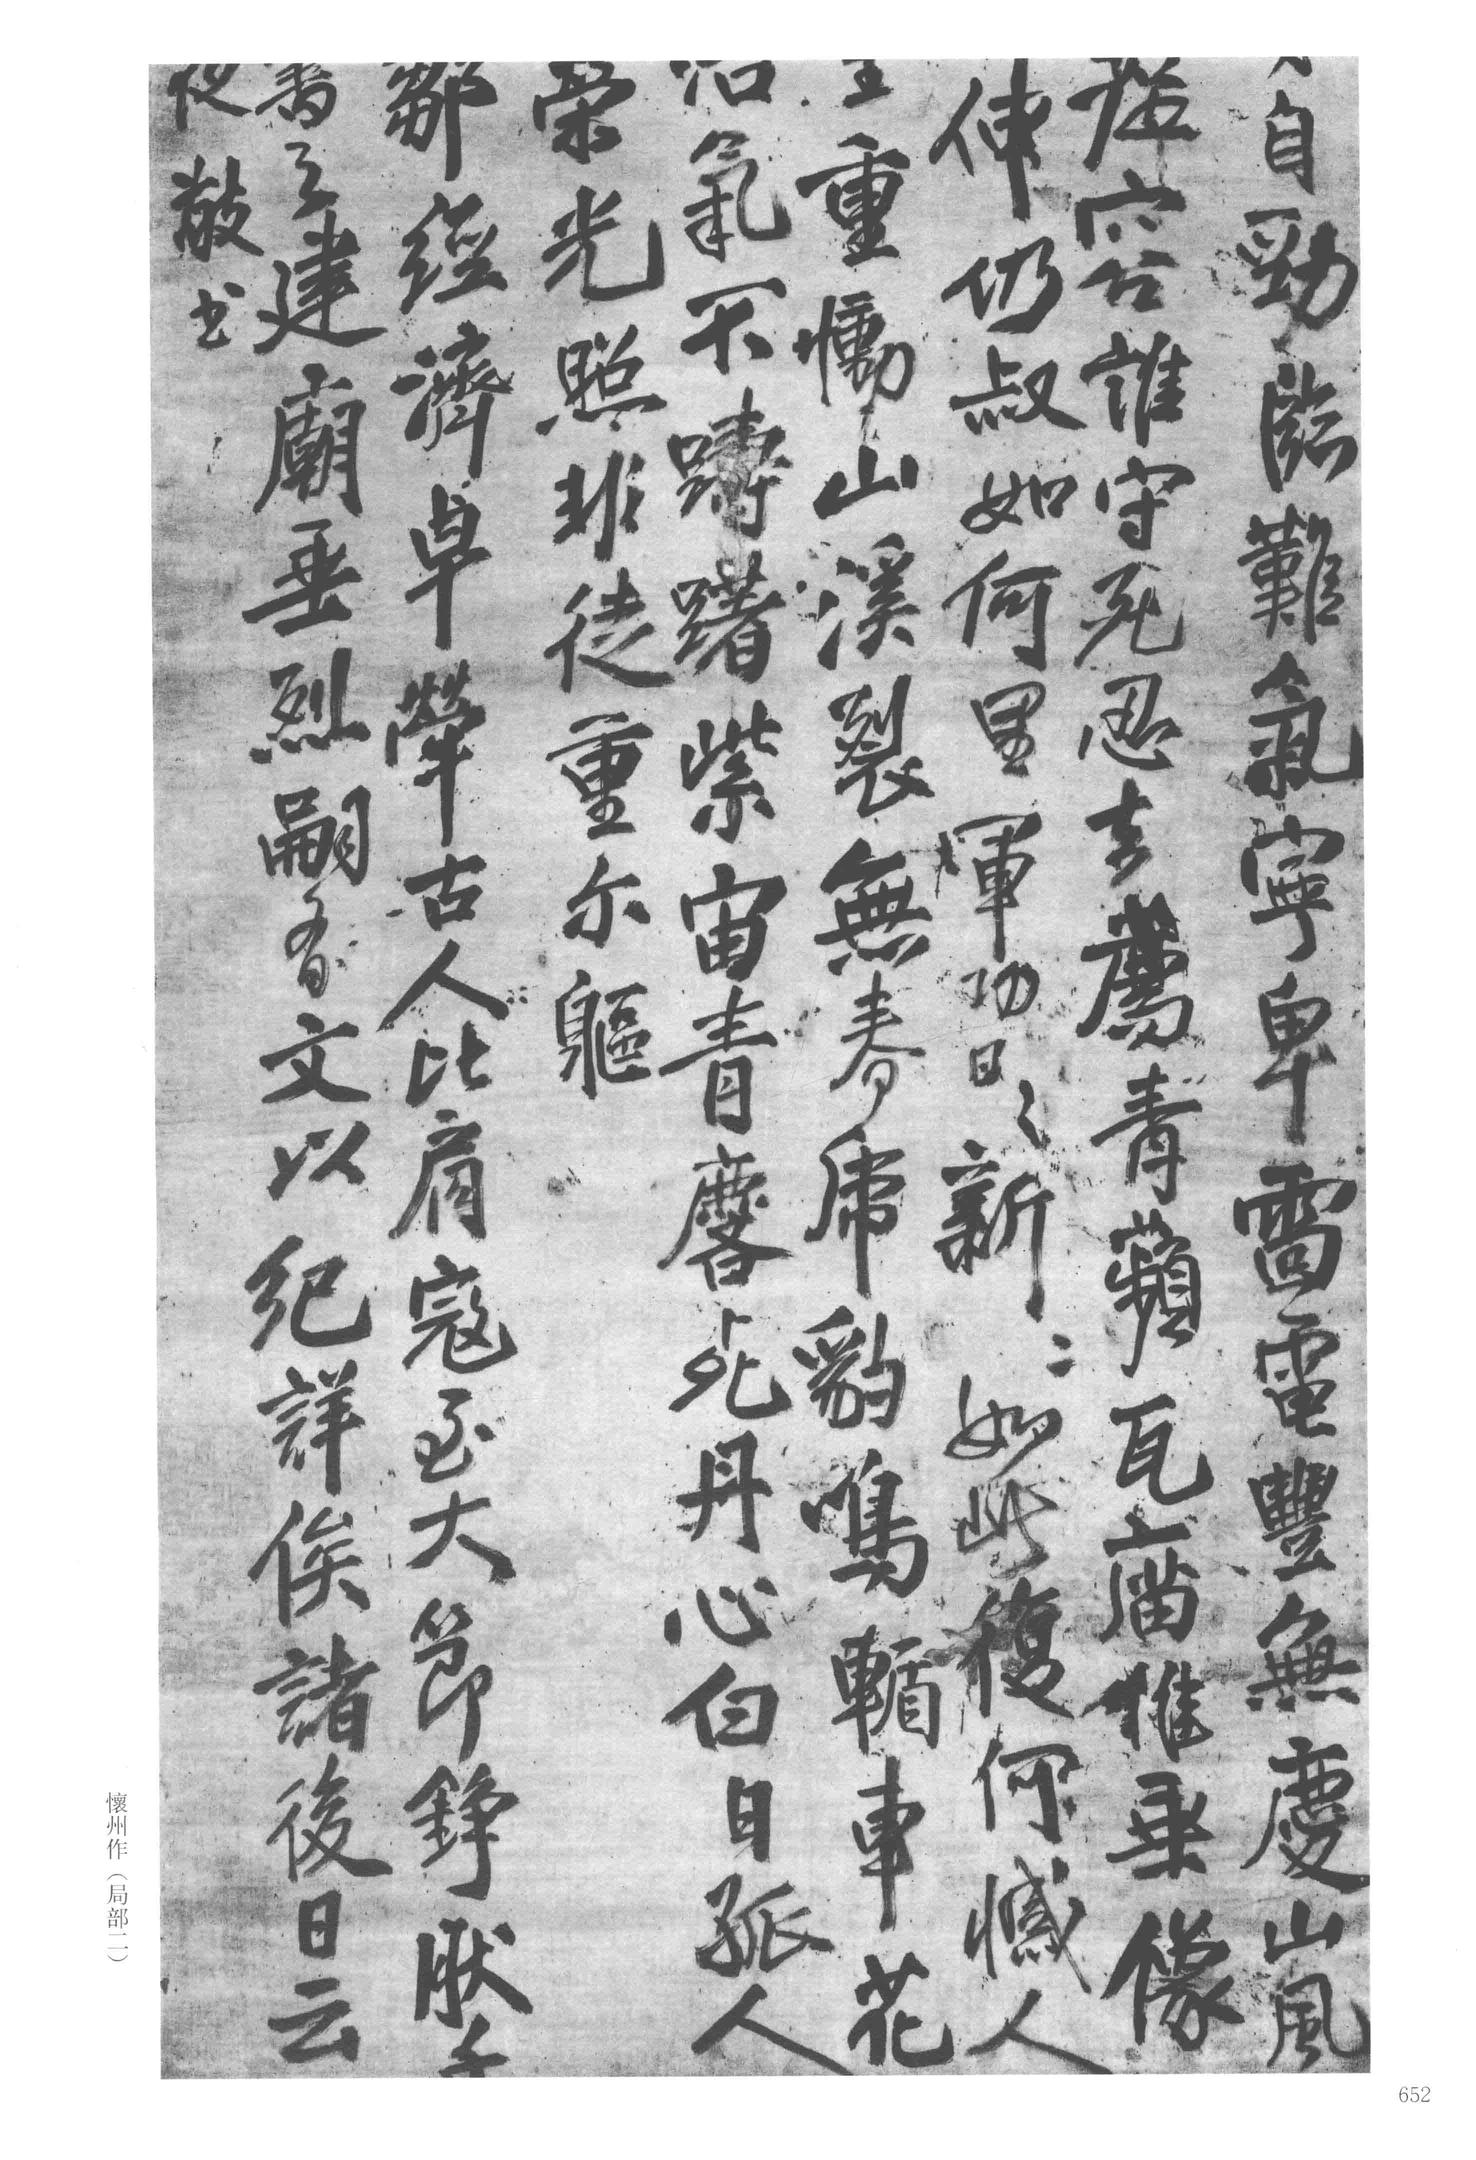 自勁臨難氣寧卑雷電豐無慶山風
居容誰守死忍去薦青蘋瓦廟惟垂像
伸仍叔如何里軍功日〻新〻如此復何憾人
重慟山溪裂無春虎豹鳴輴車花
浩氣不躊躇紫宙青麐死丹心白日孤人
榮光照非徒重尔軀
鄒經濟卓犖古人比肩寇至大節錚
云建廟垂烈嗣有文以紀詳俟諸後日云
敬书
懷州作（局部二）
652